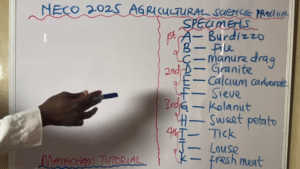 NECO 2025 AGRICULTURAL SCIENCE PRACTICAL
SPECIMENS
1st
A — Burdizzo
B — File
C — manure drag
2nd
D — Granite
E — Calcium carbonate
F — Sieve
3rd
G — Kolanut
H — Sweet potato
4th
I — Tick
J — Louse
K — fresh meat
TUTORIAL